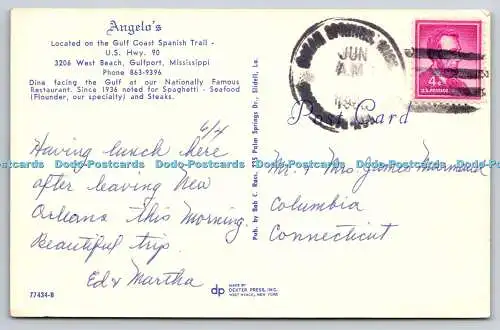 Angelo's
Located on the Gulf Coast Spanish Trail -
U.S. Hwy. 90
3206 West Beach, Gulfport, Mississippi
Phone 863-9396
Dine facing the Gulf at our Nationally Famous
Restaurant. Since 1936 noted for Spaghetti - Seafood
(Flounder, our specialty) and Steaks.
6/4
Having lunch here
after leaving New
Orleans this morning.
Beautiful trip.
Ed & Martha
77434-B
Pub. by Bob C. Russ, 235 Palmer Springs Dr., Slidell, La.
dp
MADE BY
DEXTER PRESS, INC.
WEST NYACK, NEW YORK
OCEAN SPRINGS, MISS.
JUN
A.M.
4¢
U.S. POSTAGE
Post Card
Mr. & Mrs. James
Columbia
Connecticut
Dodo-Postcards Dodo-Postcards Dodo-Postcards Dodo-Postcards Dodo-Postcards